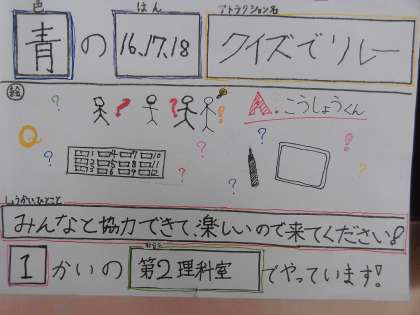 色 はん アトラクション名
青 の 16.17.18 クイズでリレー
絵
? ? ? ? ?
Q A.こうしょうくん
? ? ? ?
1 4 7 10
2 5 8 11
3 6 9 12
しょうかいひとこと
みんなと協力できて、楽しいので来てください!
1 かいの 第2理科室 でやっています!